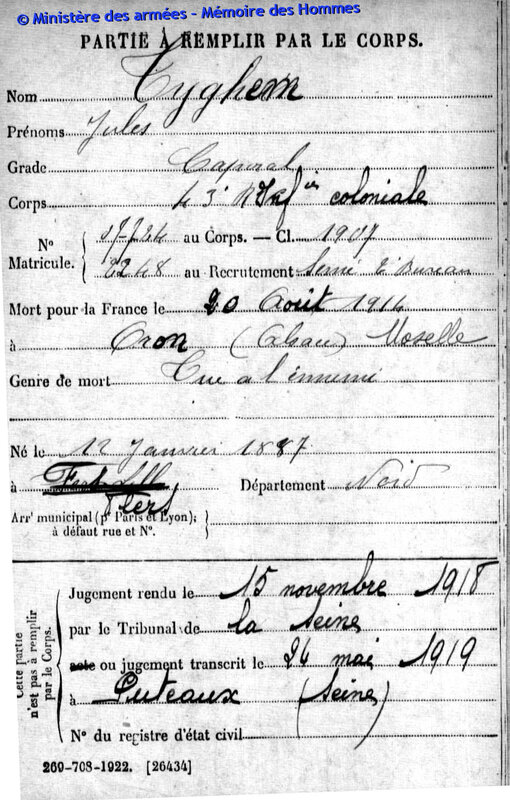 © Ministère des armées - Mémoire des Hommes
PARTIE À REMPLIR PAR LE CORPS.
Nom Tyghem
Prénoms Jules
Grade Caporal
Corps 43e R Inf ie coloniale
No Matricule. { au Corps. — Cl. 1907
2248 au Recrutement Seine 2e Bureau
Mort pour la France le 20 Août 1914
à Oron (Alsace) Moselle
Genre de mort Tué à l'ennemi
Né le 12 Janvier 1887
à Flers Département Nord
Arrt municipal (pr Paris et Lyon), à défaut rue et No. }
Cette partie n'est pas à remplir par le Corps.
Jugement rendu le 15 novembre 1918
par le Tribunal de la Seine
acte ou jugement transcrit le 24 mai 1919
à Puteaux (Seine)
No du registre d'état civil
269-708-1922. [26434]